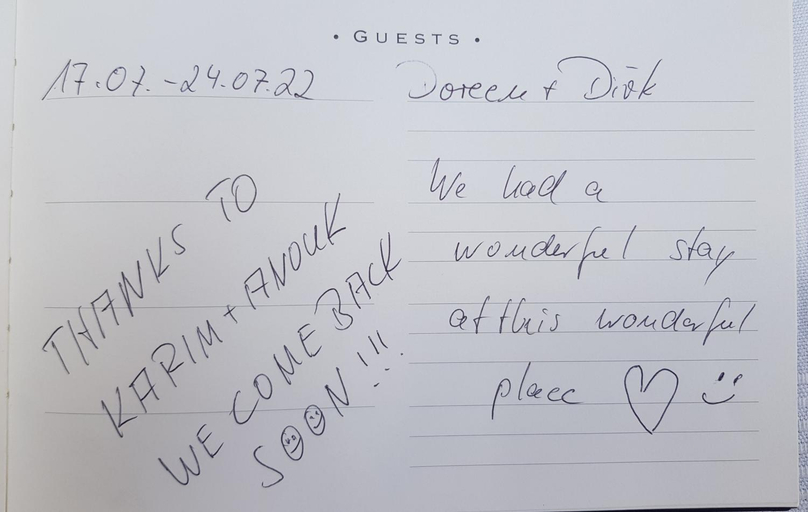 • GUESTS •
17.07.-24.07.22
THANKS TO
KARIM + ANOUK
WE COME BACK
SOON!!!
Doreen + Dirk
We had a
wonderful stay
at this wonderful
place ♡ ツ